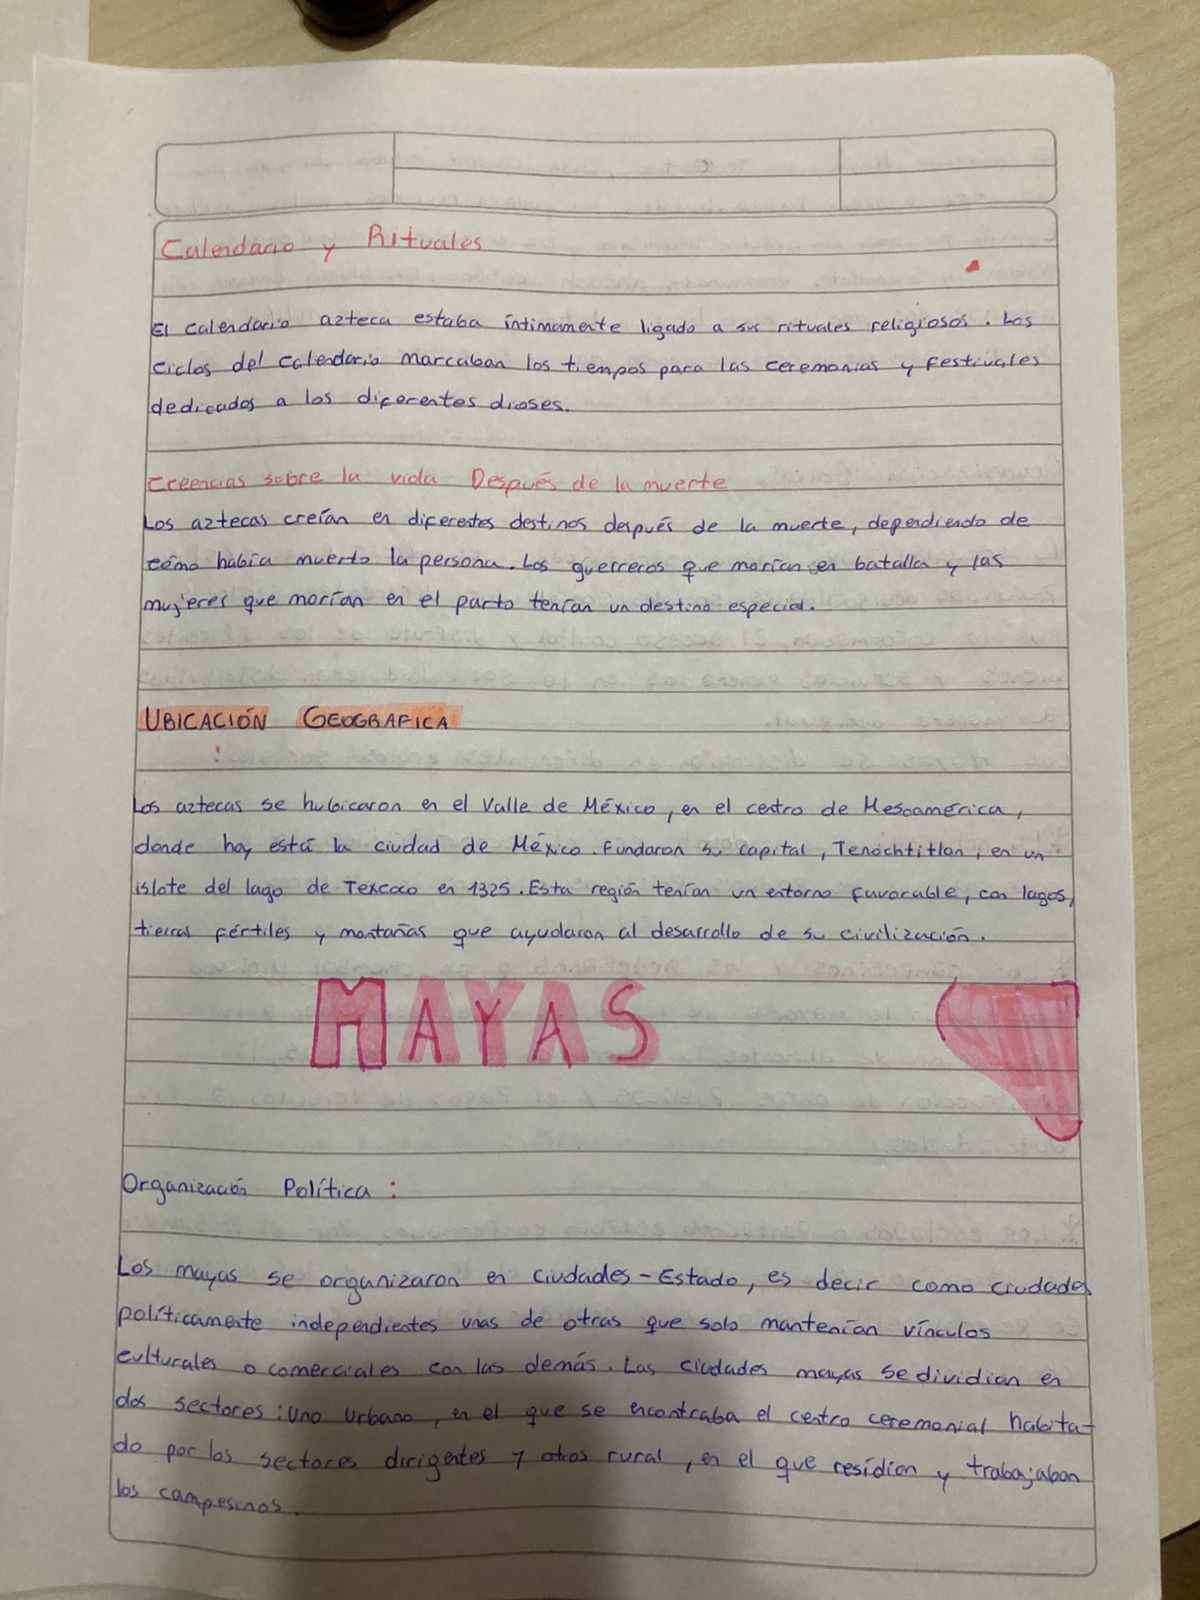 Calendario y Rituales
El calendario azteca estaba íntimamente ligado a sus rituales religiosos. Los
ciclos del calendario marcaban los tiempos para las ceremonias y festivales
dedicados a los diferentes dioses.
Creencias sobre la vida Después de la muerte
Los aztecas creían en diferentes destinos después de la muerte, dependiendo de
cómo había muerto la persona. Los guerreros que morían en batalla y las
mujeres que morían en el parto tenían un destino especial.
UBICACIÓN GEOGRAFICA
:
Los aztecas se hubicaron en el Valle de México, en el centro de Mesoamérica,
donde hoy está la ciudad de México. Fundaron su capital, Tenochtitlan, en un
islote del lago de Texcoco en 1325. Esta región tenían un entorno favorable, con lagos,
tierras fértiles y montañas que ayudaron al desarrollo de su civilización.
MAYAS
Organización Política :
Los mayas se organizaron en ciudades-Estado, es decir como ciudades
políticamente independientes unas de otras que solo mantenían vínculos
culturales o comerciales con las demás. Las ciudades mayas se dividian en
dos sectores: uno urbano, en el que se encontraba el centro ceremonial habita-
do por los sectores dirigentes y otros rural, en el que residían y trabajaban
los campesinos.